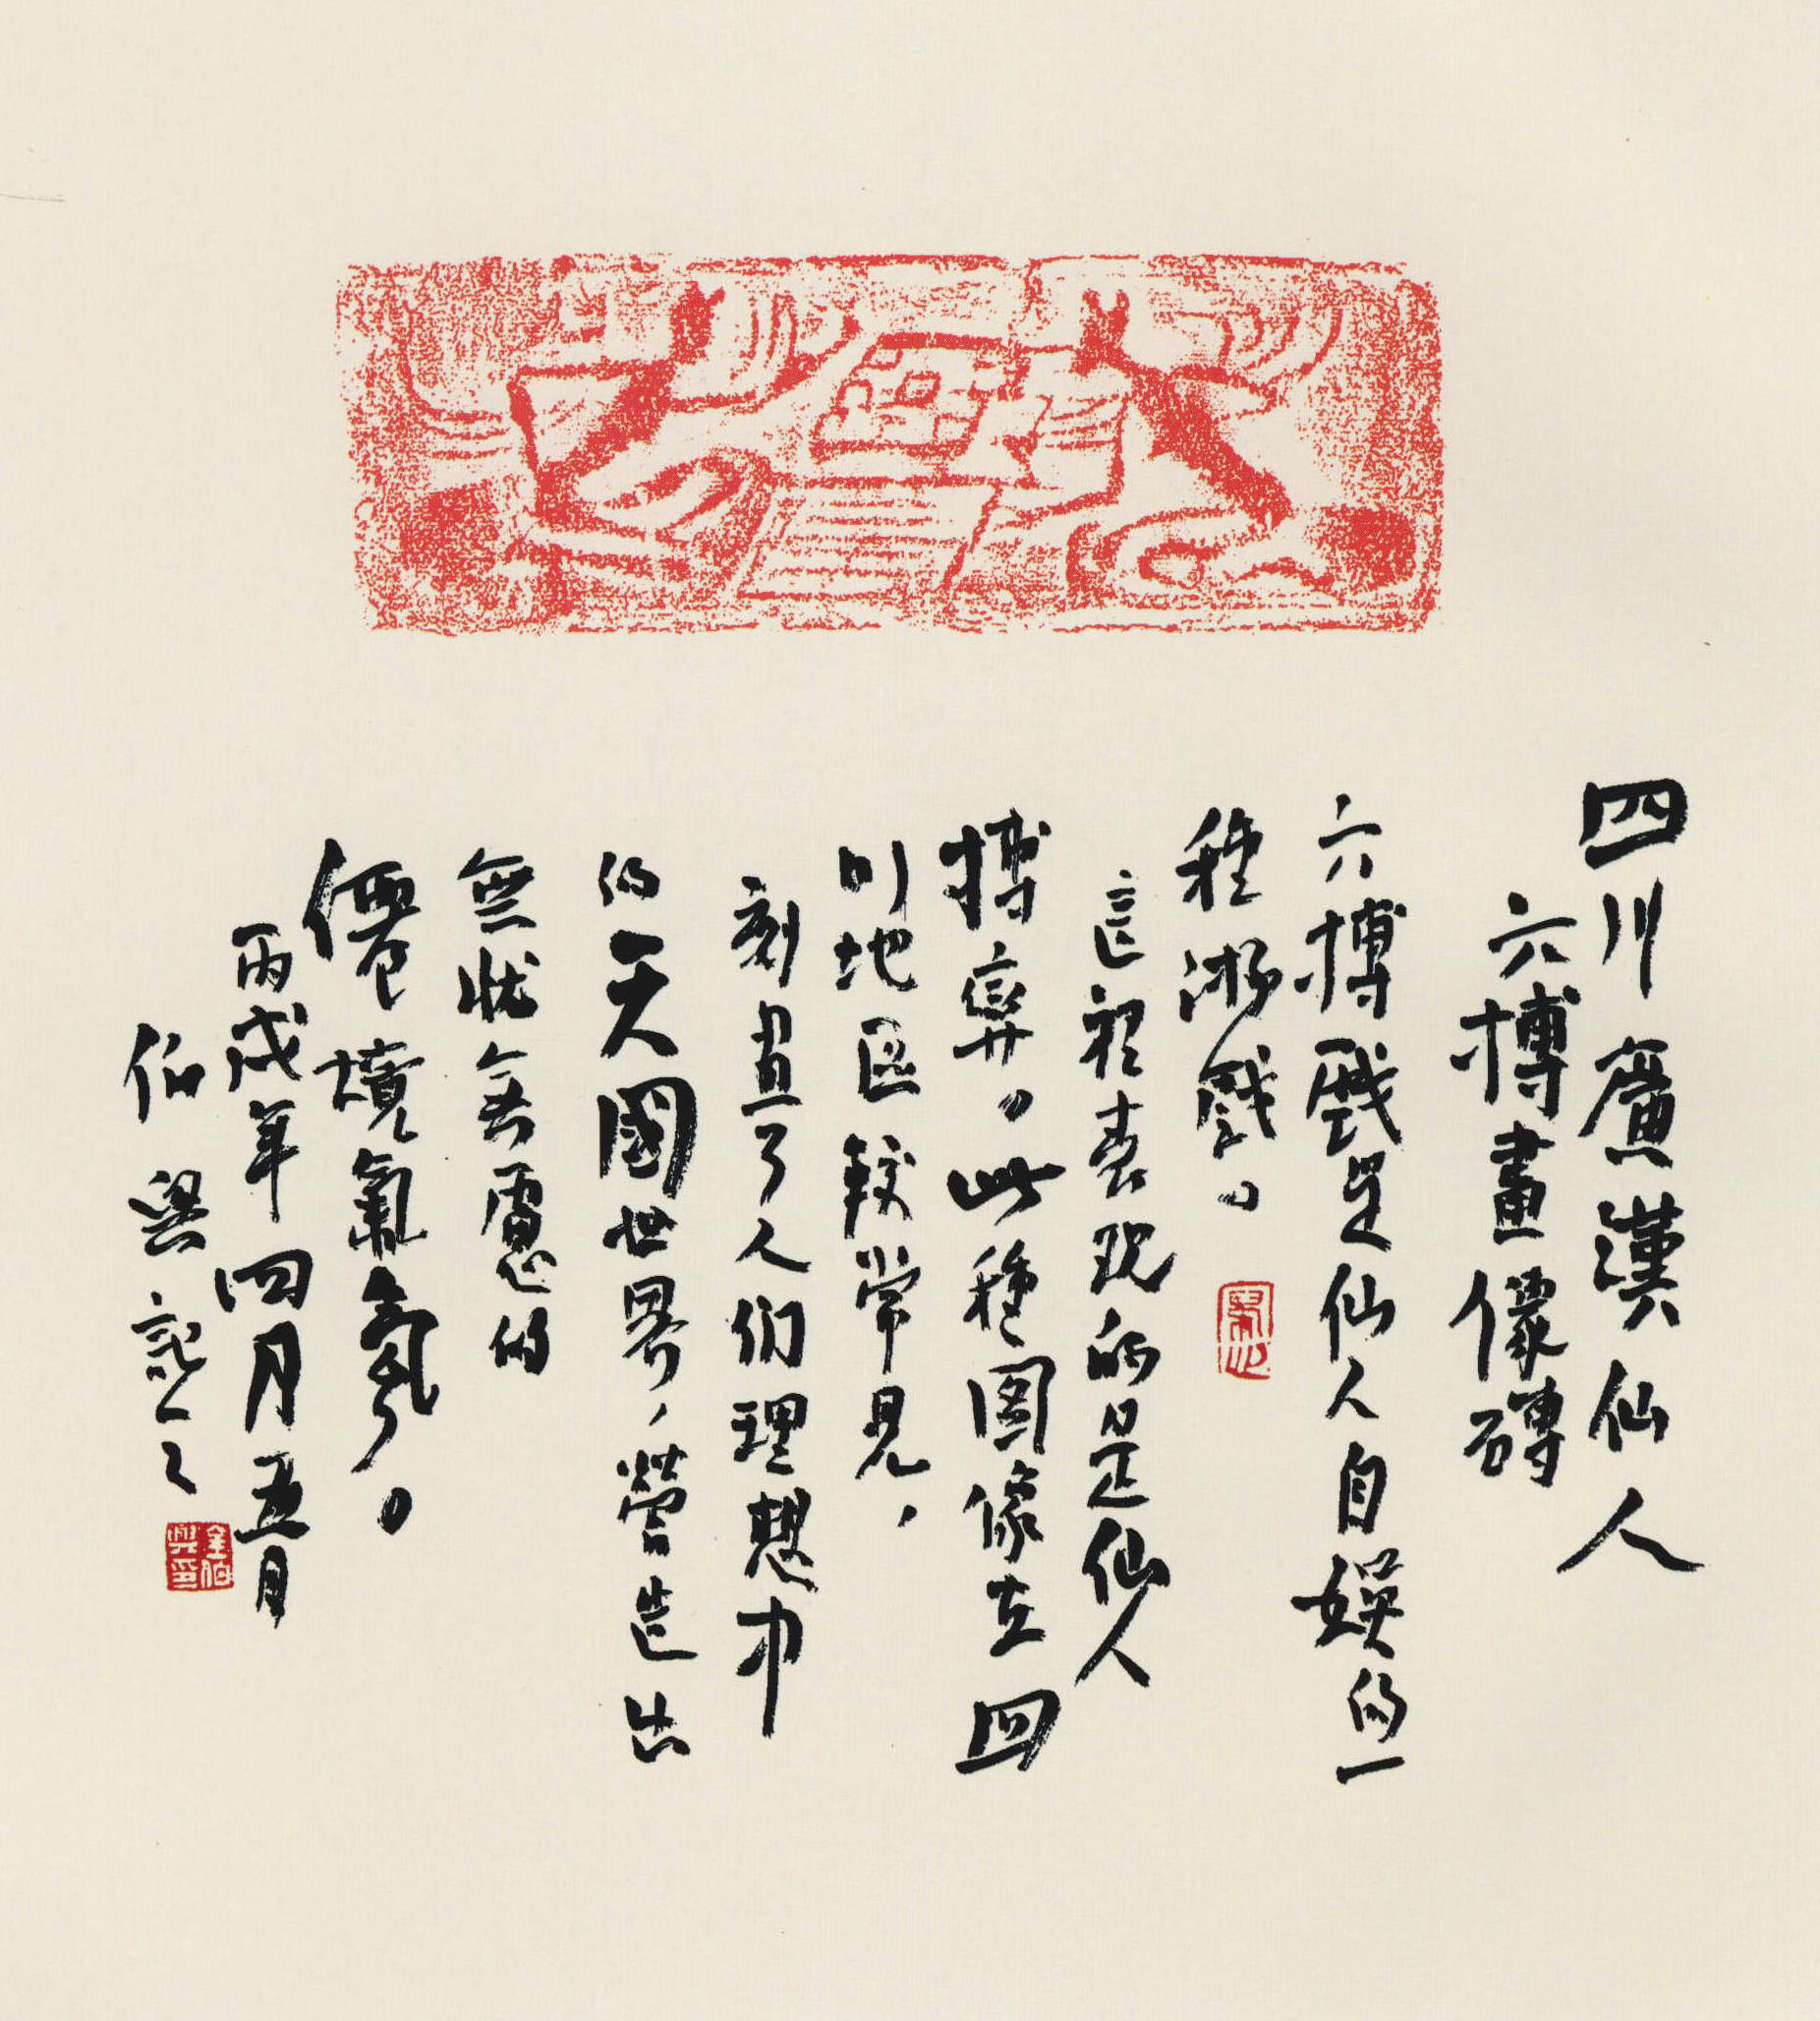 四川廣漢仙人
六博畫像磚
六博戲是仙人自娱的一
種游戲。
這裡表現的是仙人
博弈。此種图像在四
川地区較常見，
刻畫了人们理想中
的天國世界，營造出
無忧無慮的
僊境氣氛。
丙戌年四月五月
伯興記之